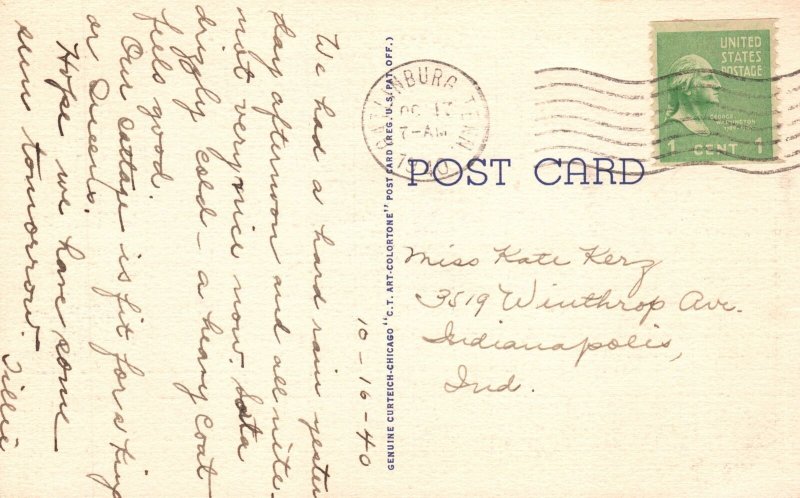 10-16-40
We had a hard rain yester
day afternoon and all nite -
not very nice now. Lota
drizzly cold - a heavy coat
feels good.
Our cottage is fit for a king
or Queen.
Hope we have some
sun tomorrow.
Tillie
GENUINE CURTEICH-CHICAGO "C.T. ART-COLORTONE" POST CARD (REG. U.S. PAT. OFF.)
GATLINBURG, TENN.
OC 17
7-AM
1940
UNITED
STATES
POSTAGE
GEORGE
WASHINGTON
1 CENT 1
POST CARD
Miss Kate Kerz
3519 Winthrop Ave.
Indianapolis,
Ind.